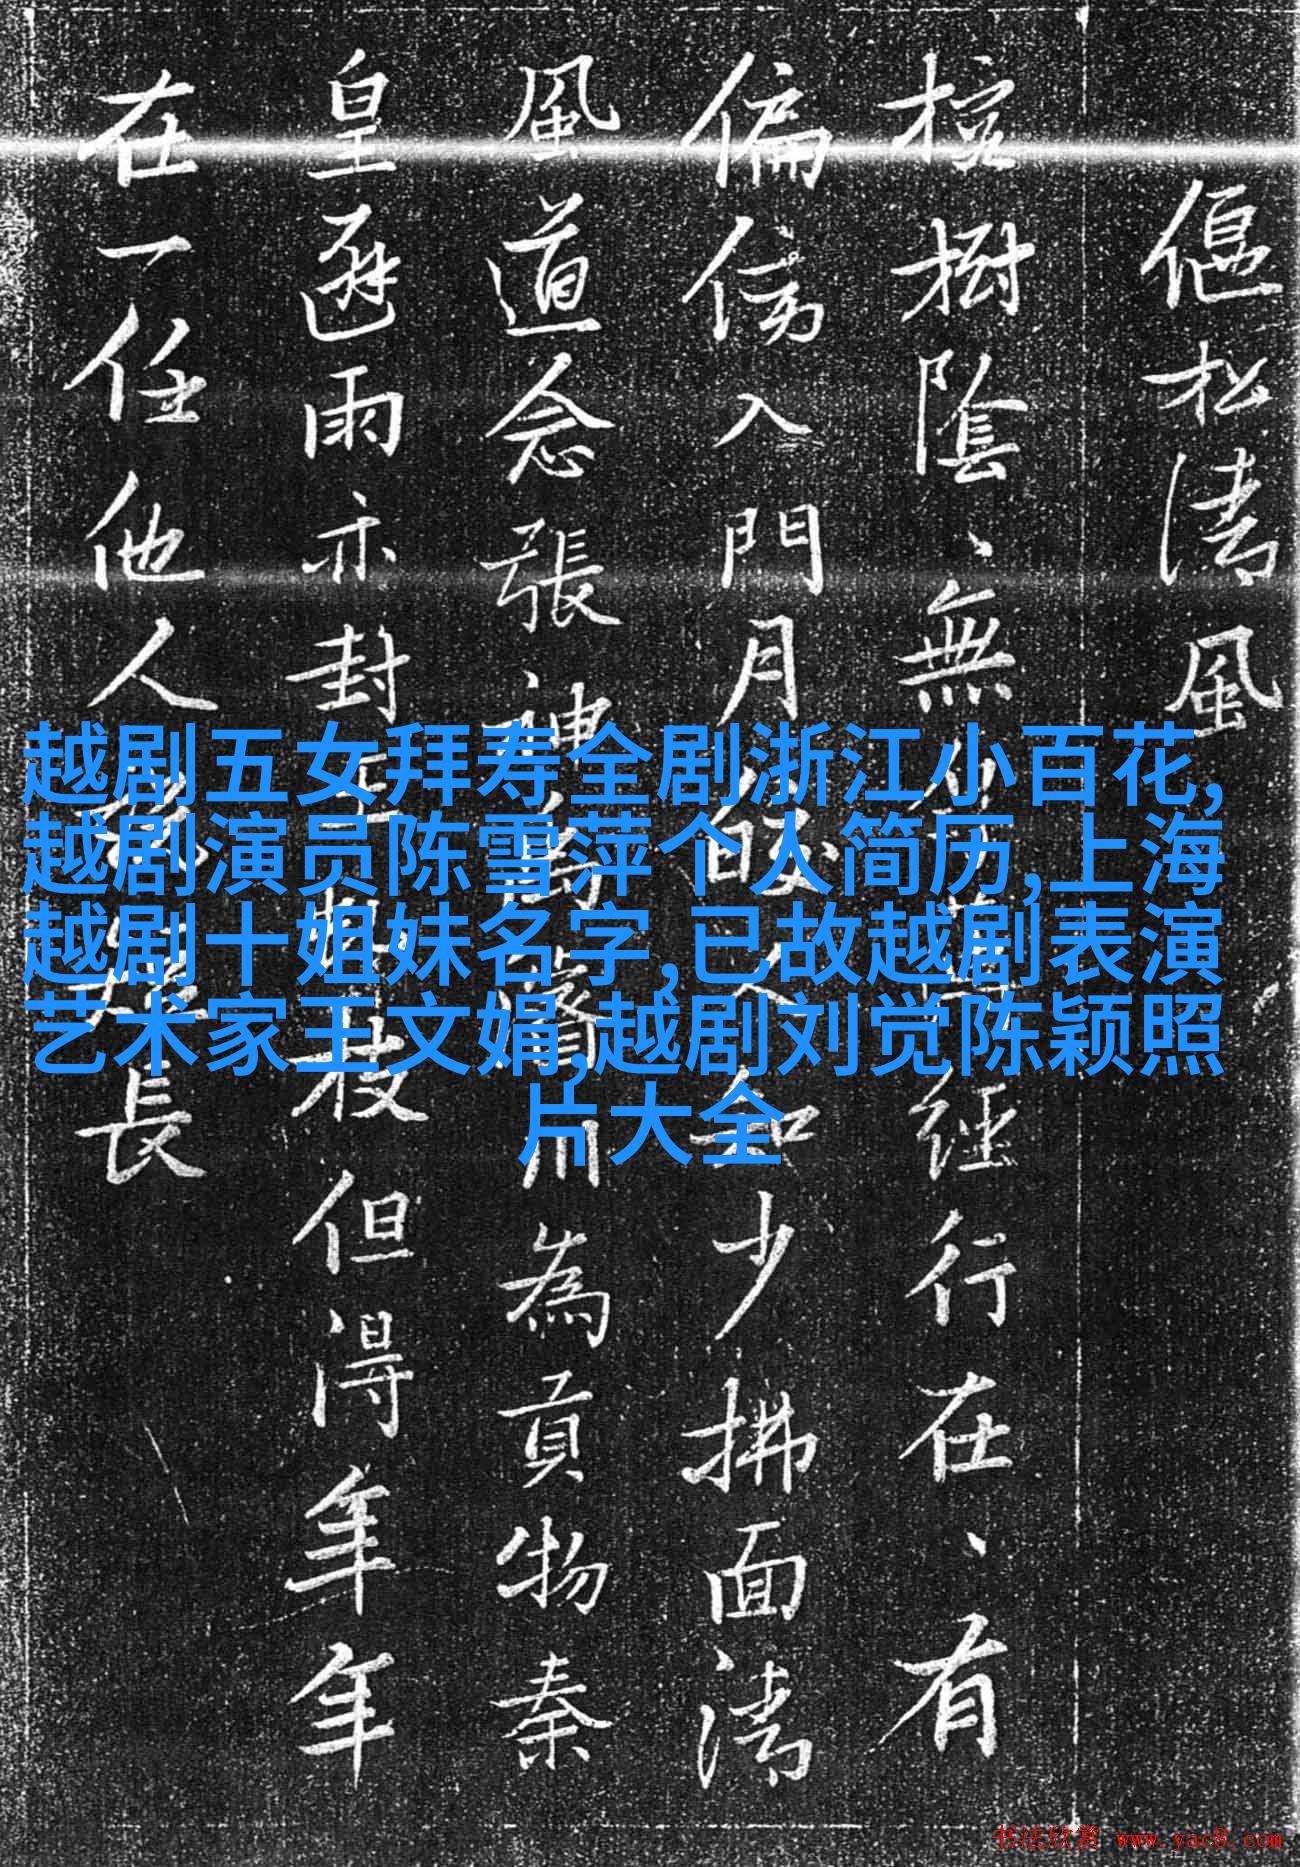 偃松清風
樹陰、無
經行在、有
偏傍入門月
人知少拂面清
風道念張神
為貢物秦
皇避雨亦封
枝但得年年
在一任他人
長
越剧五女拜寿全剧浙江小百花,
越剧演员陈雪萍个人简历,上海
越剧十姐妹名字,已故越剧表演
艺术家王文娟,越剧刘觉陈颖照
片大全
书法欣赏 www.yac8.com